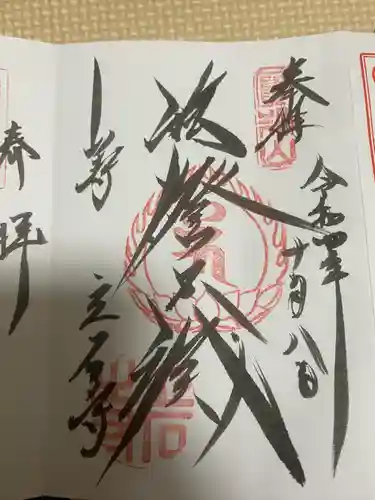 奉拝
令和四年十月八日
法燈不滅
山寺
立石寺
奉拝